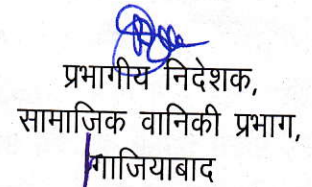 प्रभागीय निदेशक,
सामाजिक वानिकी प्रभाग,
गाजियाबाद